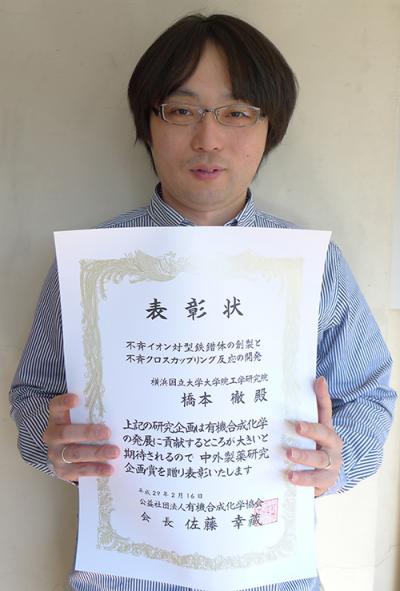 表彰状
不斉イオン対型鉄錯体の創製と
不斉クロスカップリング反応の開発
横浜国立大学大学院工学研究院
橋本 徹 殿
上記の研究企画は有機合成化学
の発展に貢献するところが大きいと
期待されるので 中外製薬研究
企画賞を贈り表彰いたします
平成29年2月16日
公益社団法人有機合成化学協会
会長 佐藤 幸蔵